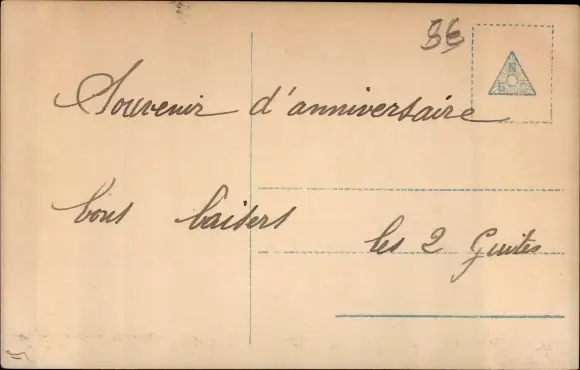 Souvenir d'anniversaire
bons baisers
les 2 Guites